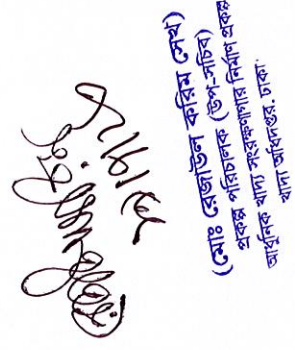 (মোঃ রেজাউল করিম সেখ)
প্রকল্প পরিচালক (উপ-সচিব)
আধুনিক খাদ্য সংরক্ষণাগার নির্মাণ প্রকল্প
খাদ্য অধিদপ্তর, ঢাকা.